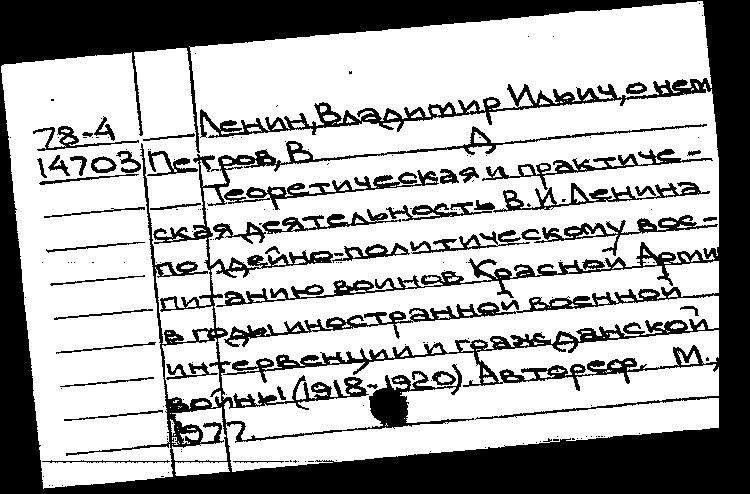 78-4 Ленин, Владимир Ильич, о нем
14703 Петров, В Д
Теоретическая и практиче-
ская деятельность В.И.Ленина
по идейно-политическому вос-
питанию воинов Красной Арми
в годы иностранной военной
интервенции и гражданской
войны (1918-1920). Автореф. М.,
1977.